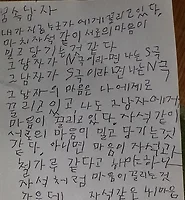 남자
내가 서로 누구에게 끌리고 있다,
마치 자석같이 서로의 마음이
밀고 당기는것 같다
그 남자가 N극이라면 나는 S극
그 남자가 S극이라면 나는 N극
그 남자의 마음은 나에게로
끌리고 있고 나도 그 남자에게
마음이 끌리고 있다 자석같이
서로의 마음이 밀고 당기는것
같다, 아니면 마음이 자석과
철가루 같다고 해야하나
자석처럼 마음이 끌리는것
같은데 자석같은 내마음